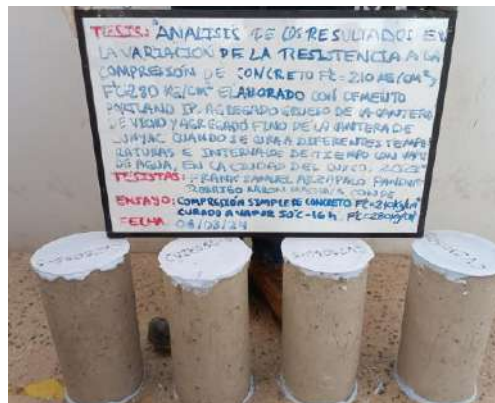 TESIS: "ANALISIS DE LOS RESULTADOS EN
LA VARIACIÓN DE LA RESISTENCIA A LA
COMPRESIÓN DE CONCRETO F'C=210 KG/CM²,
F'C=280 KG/CM² ELABORADO CON CEMENTO
PORTLAND IP, AGREGADO GRUESO DE LA CANTERA
DE VICHO Y AGREGADO FINO DE LA CANTERA DE
CUANDO SE CURA A DIFERENTES TEMPE
RATURAS E INTERVALOS DE TIEMPO CON VAPOR
DE AGUA, EN LA CIUDAD DEL CUSCO, 2023"
TESISTAS: FRANK
RODRIGO
ENSAYO: COMPRESIÓN SIMPLE DE CONCRETO F'C=210kg/cm²
CURADO A VAPOR 50°C-16h F'C=280kg/cm²
FECHA 06/03/24